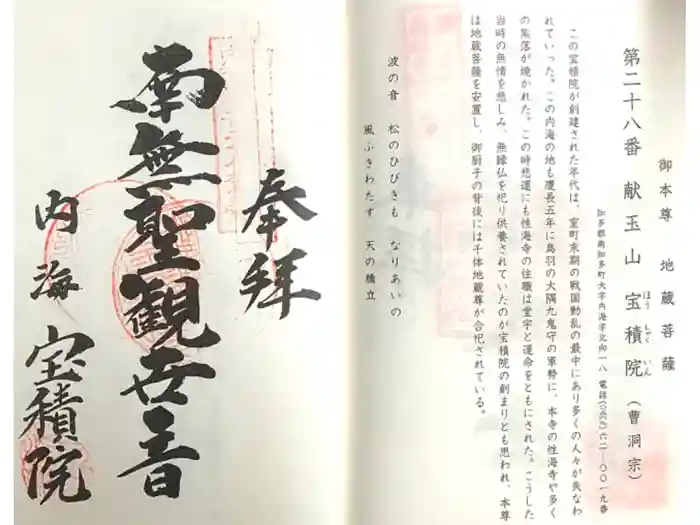 御本尊　地蔵菩薩
第二十八番　献玉山　宝積院（曹洞宗）
ほう　しゃく　いん
知多郡南知多町大字内海字比向一八　電話(〇五六九)六二―〇〇一九番
この宝積院が創建された年代は、室町末期の戦国動乱の最中にあり多くの人々が失なわ
れていった。この内海の地も慶長五年に鳥羽の大隅九鬼守の軍勢に、本寺の性海寺や多く
の集落が焼かれた。この時悲運にも性海寺の住職は堂宇と運命をともにされた。こうした
当時の無情を悲しみ、無縁仏を祀り供養されていたのが宝積院の創まりとも思われ、本尊
は地蔵菩薩を安置し、御厨子の背後には千体地蔵尊が合祀されている。
波の音　松のひびきも　なりあいの
風ふきわたす　天の橋立
奉拝
南無聖観世音
内海　宝積院